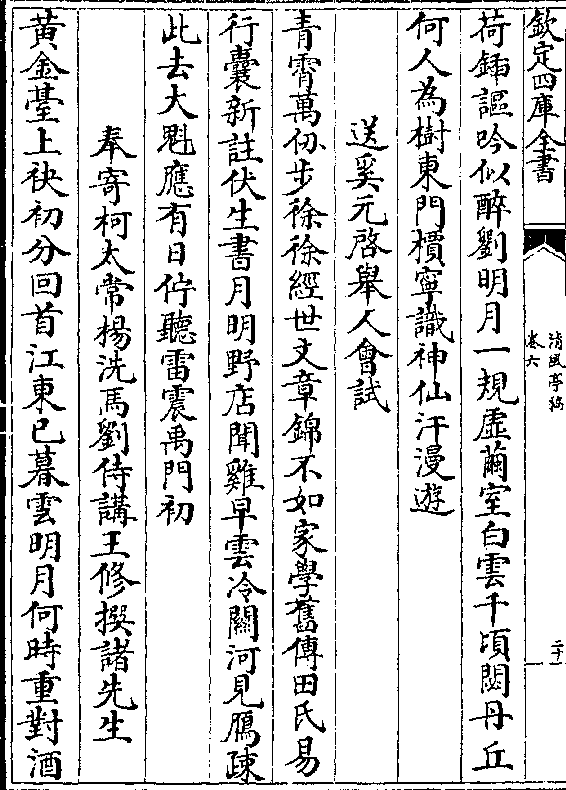 欽定四庫全書
清風亭稿
卷六
二十一
荷鍤謳吟似醉劉明月一規虛繭室白雲千頃閟丹丘
何人為樹東門檟寧識神仙汗漫遊
送奚元啓舉人會試
青霄萬仭步徐徐經世文章錦不如家學舊傳田氏易
行囊新註伏生書月明野店聞雞早雲冷關河見鴈疎
此去大魁應有日佇聽雷震禹門初
奉寄柯太常楊洗馬劉侍講王修撰諸先生
黃金臺上袂初分回首江東已暮雲明月何時重對酒